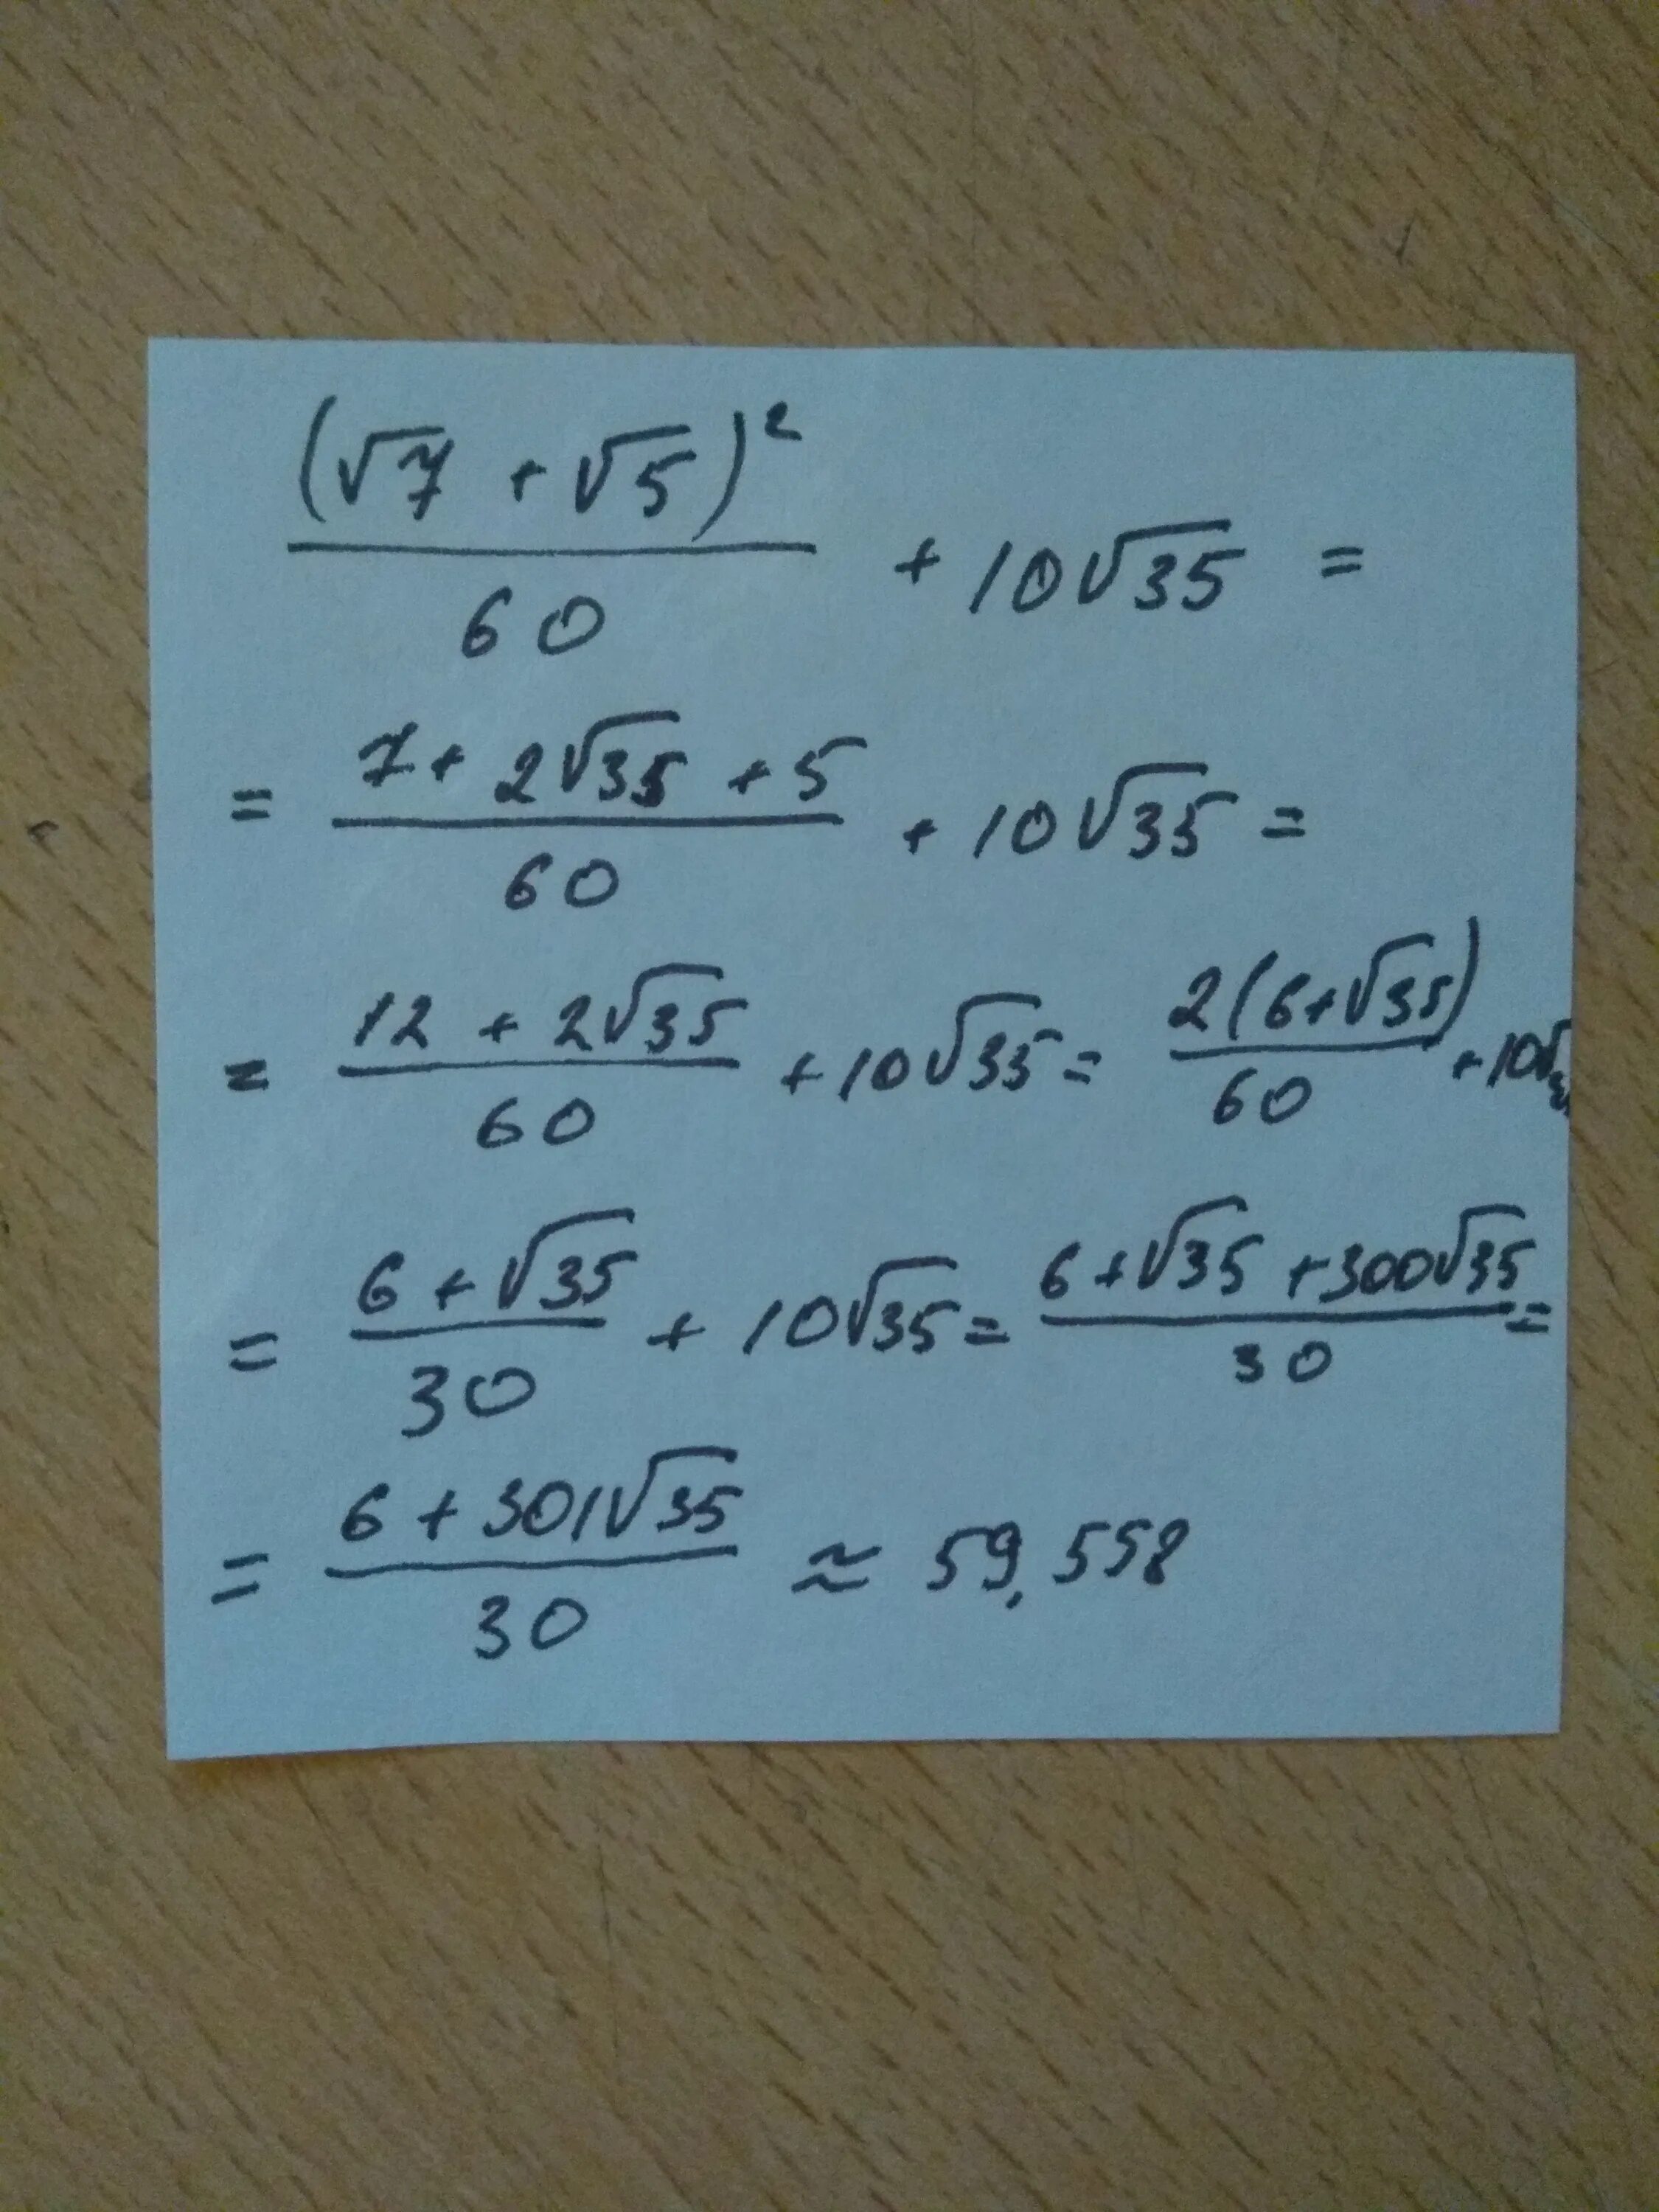 (√7 + √5)² / 60 + 10√35 =
= 7 + 2√35 + 5 / 60 + 10√35 =
= 12 + 2√35 / 60 + 10√35 = 2(6+√35) / 60 + 10√3
= 6 + √35 / 30 + 10√35 = 6 + √35 + 300√35 / 30 =
= 6 + 301√35 / 30 ≈ 59,558